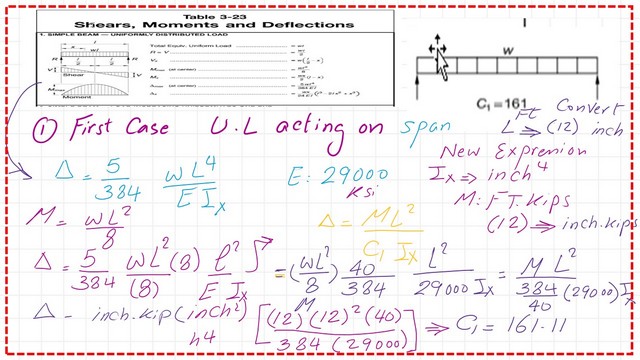 Table 3-23
Shears, Moments and Deflections
1. SIMPLE BEAM — UNIFORMLY DISTRIBUTED LOAD
Total Equiv. Uniform Load
Shear
Moment
w
C₁ = 161
① First Case U.L acting on span
Ft Convert
L ⇒ (12) inch
New Expression
Iₓ ⇒ inch⁴
M: FT. Kips
(12) ⇒ inch.kips
Δ = 5/384 wL⁴/E Iₓ
E: 29000 Ksi
M = wL²/8
Δ = ML²/C₁ Iₓ
Δ = 5/384 wL²(8)/(8) l²/E Iₓ = (wL²/8) 40/384 L²/29000 Iₓ = M L²/(384/40 (29000) Iₓ)
M
Δ = inch.kip (inch²) [(12)(12)²(40)/384 (29000)] ⇒ C₁ = 161.11